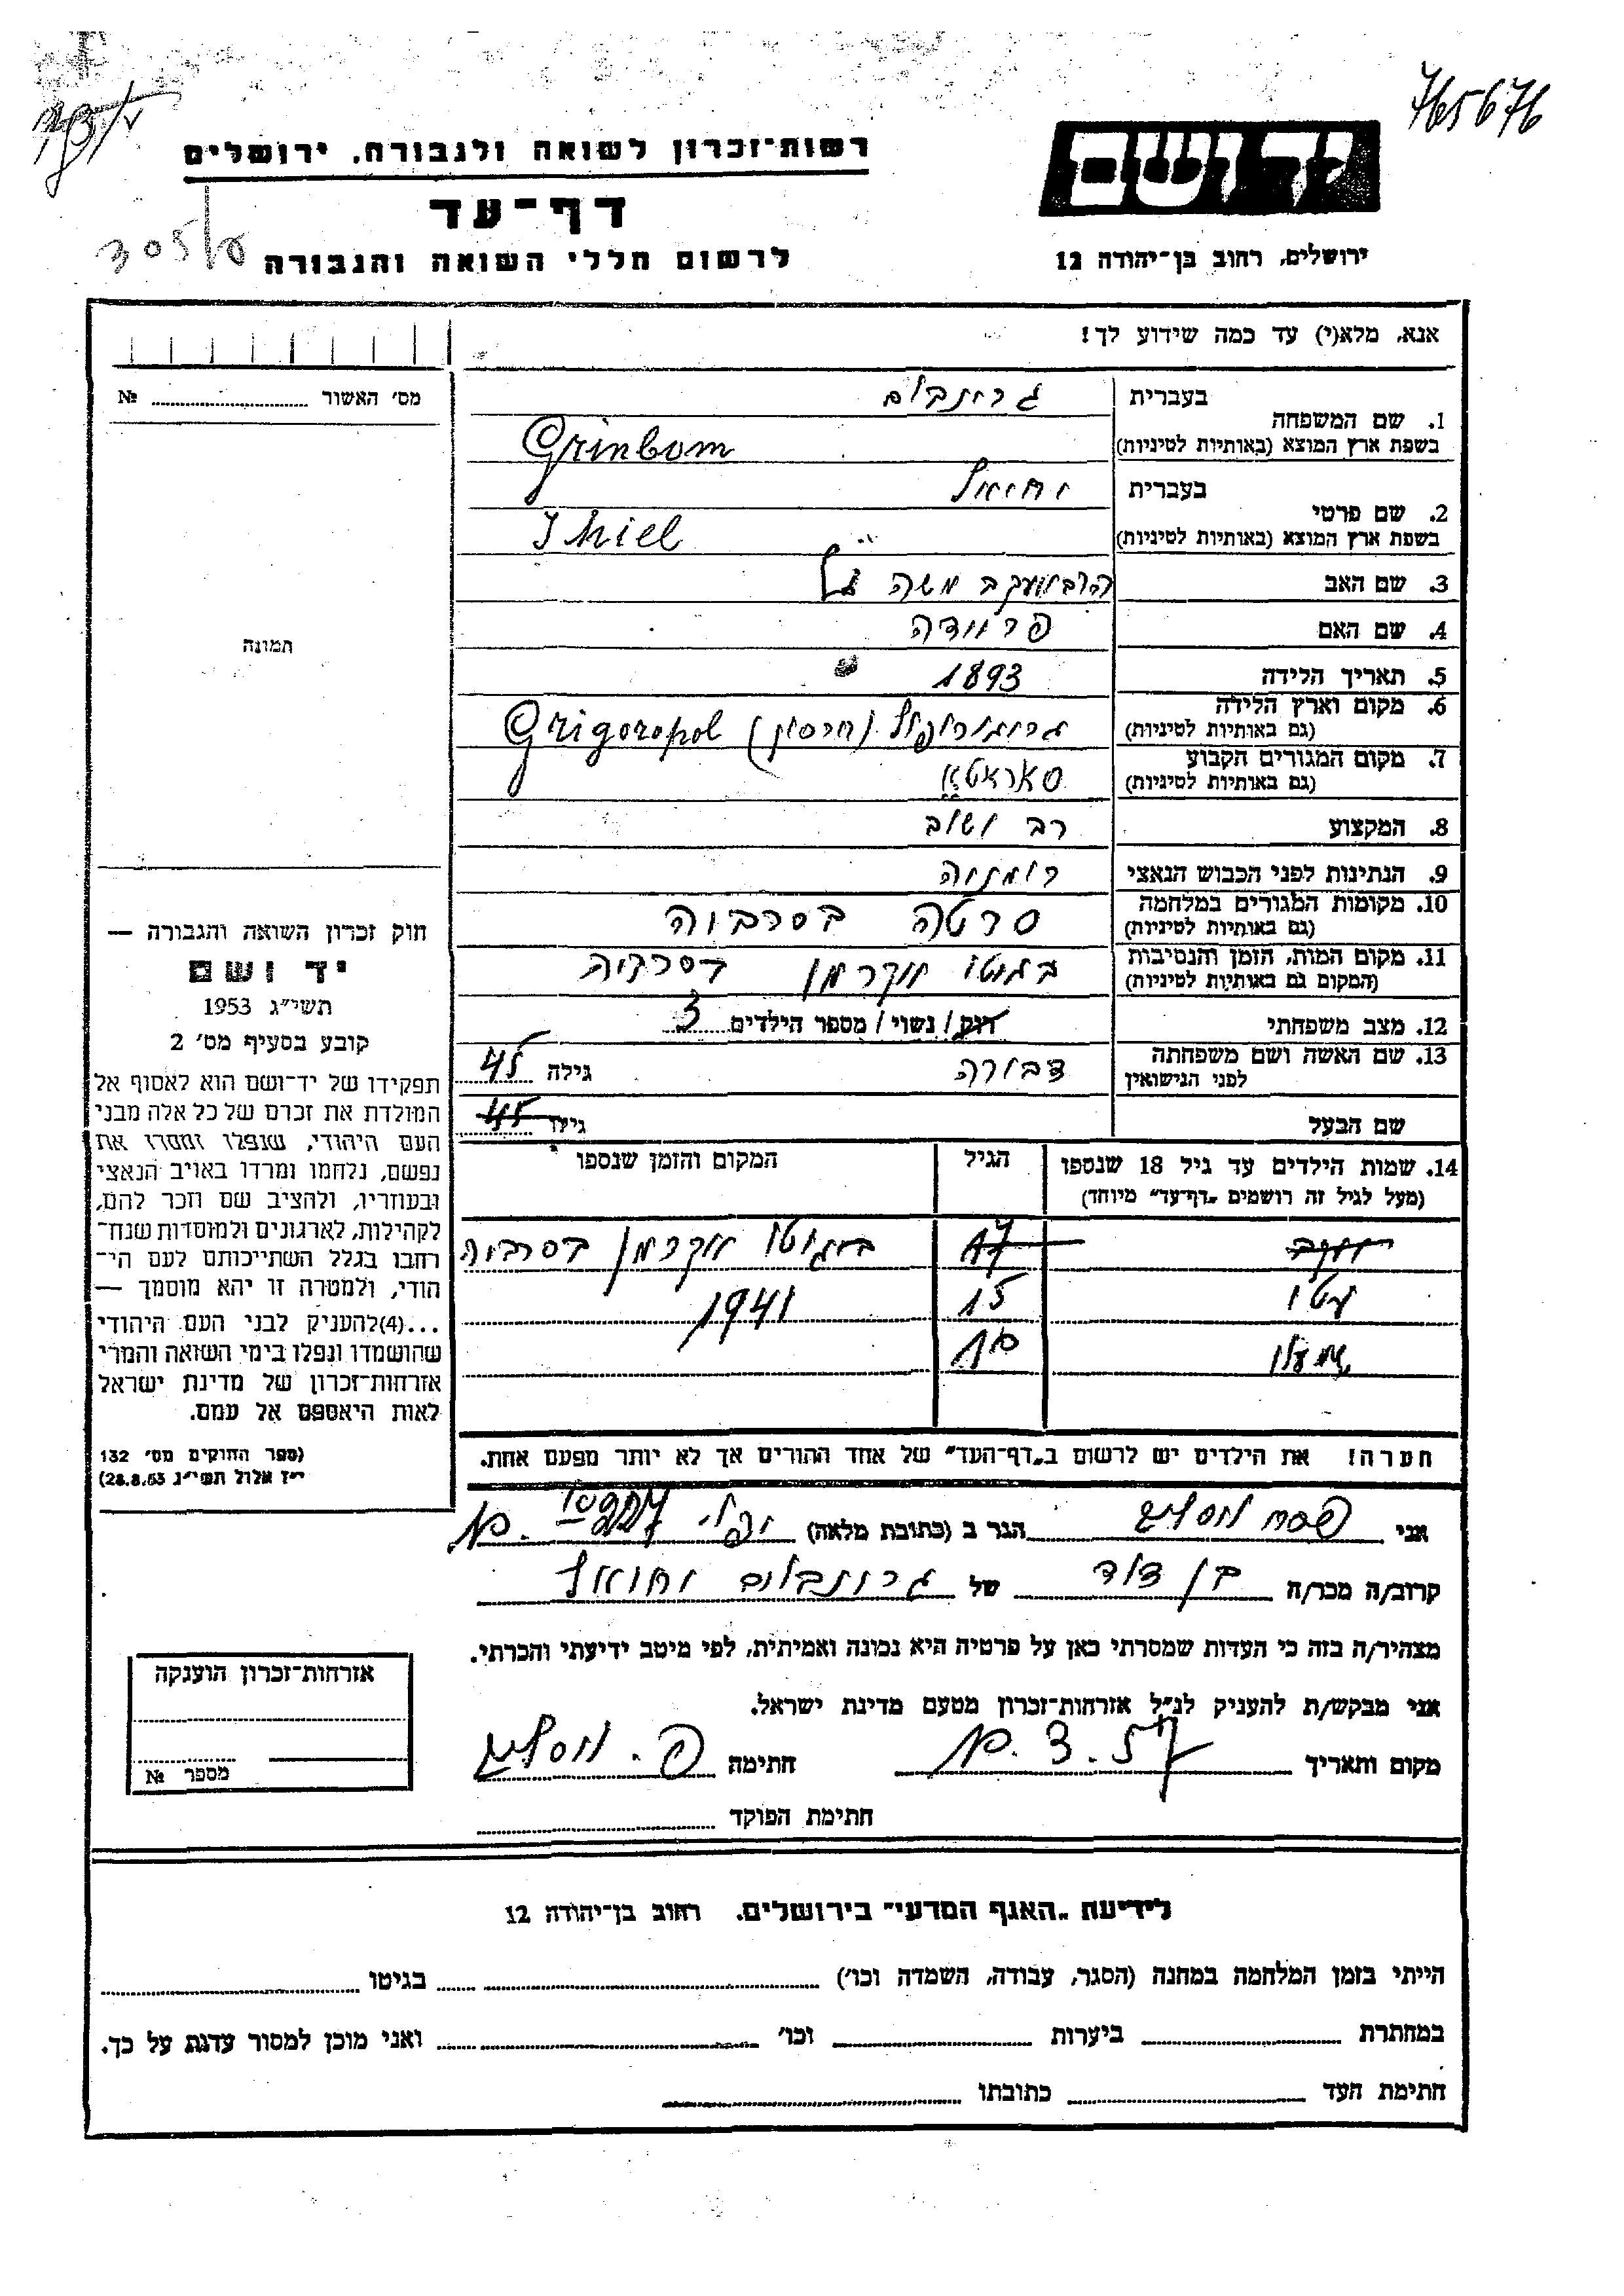 765676
רשות־זכרון לשואה ולגבורה, ירושלים
יד ושם
דף־עד
לרשום חללי השואה והגבורה
ירושלים, רחוב בן־יהודה 12
אנא, מלא(י) עד כמה שידוע לך!
מס׳ האשור № 
1. שם המשפחה
בעברית גרינבלום
בשפת ארץ המוצא (באותיות לטיניות) Grinbom
2. שם פרטי
בעברית יחיאל
בשפת ארץ המוצא (באותיות לטיניות) Ihiel
3. שם האב משה
4. שם האם פריידה
5. תאריך הלידה 1893
6. מקום וארץ הלידה
(גם באותיות לטיניות) גריגוריופול (חרסון) Grigoropol
7. מקום המגורים הקבוע
(גם באותיות לטיניות) סאראטא
8. המקצוע רב
9. הנתינות לפני הכבוש הנאצי רומניה
10. מקומות המגורים במלחמה
(גם באותיות לטיניות) סרטה בסרביה
11. מקום המות, הזמן והנסיבות
(המקום גם באותיות לטיניות) בגיטו
12. מצב משפחתי רוק / נשוי / מספר הילדים 3
13. שם האשה ושם משפחתה
לפני הנישואין דבורה גילה 45
שם הבעל גילו 45
14. שמות הילדים עד גיל 18 שנספו
(מעל לגיל זה רושמים „דף־עד״ מיוחד)
הגיל
המקום והזמן שנספו
17 בגיטו בסרביה
15 1941
שמעון
הערה! את הילדים יש לרשום ב„דף־העד״ של אחד ההורים אך לא יותר מפעם אחת.
תמונה
חוק זכרון השואה והגבורה —
יד ושם
תשי״ג 1953
קובע בסעיף מס׳ 2
תפקידו של יד־ושם הוא לאסוף אל
המולדת את זכרם של כל אלה מבני
העם היהודי, שנפלו ומסרו את
נפשם, נלחמו ומרדו באויב הנאצי
ובעוזריו, ולהציב שם וזכר להם,
לקהילות, לארגונים ולמוסדות שנח־
רחבו בגלל השתייכותם לעם הי־
הודי, ולמטרה זו יהא מוסמך —
...(4)להעניק לבני העם היהודי
שהושמדו ונפלו בימי השואה והמרי
אזרחות־זכרון של מדינת ישראל
לאות היאספם אל עמם.
(ספר החוקים מס׳ 132
י״ז אלול תשי״ג 28.8.53)
אני פסח הגר ב (כתובת מלאה)
קרוב/ה מכר/ה בן דוד של גרינבלום יחיאל
מצהיר/ה בזה כי העדות שמסרתי כאן על פרטיה היא נכונה ואמיתית, לפי מיטב ידיעתי והכרתי.
אני מבקש/ת להעניק לנ״ל אזרחות־זכרון מטעם מדינת ישראל.
מקום ותאריך חתימה
חתימת הפוקד
אזרחות־זכרון הוענקה
מספר №
לידיעת „האגף המדעי״ בירושלים, רחוב בן־יהודה 12
הייתי בזמן המלחמה במחנה (הסגר, עבודה, השמדה וכו׳) בגיטו
במחתרת ביערות וכו׳ ואני מוכן למסור עדות על כך.
חתימת העד כתובתו